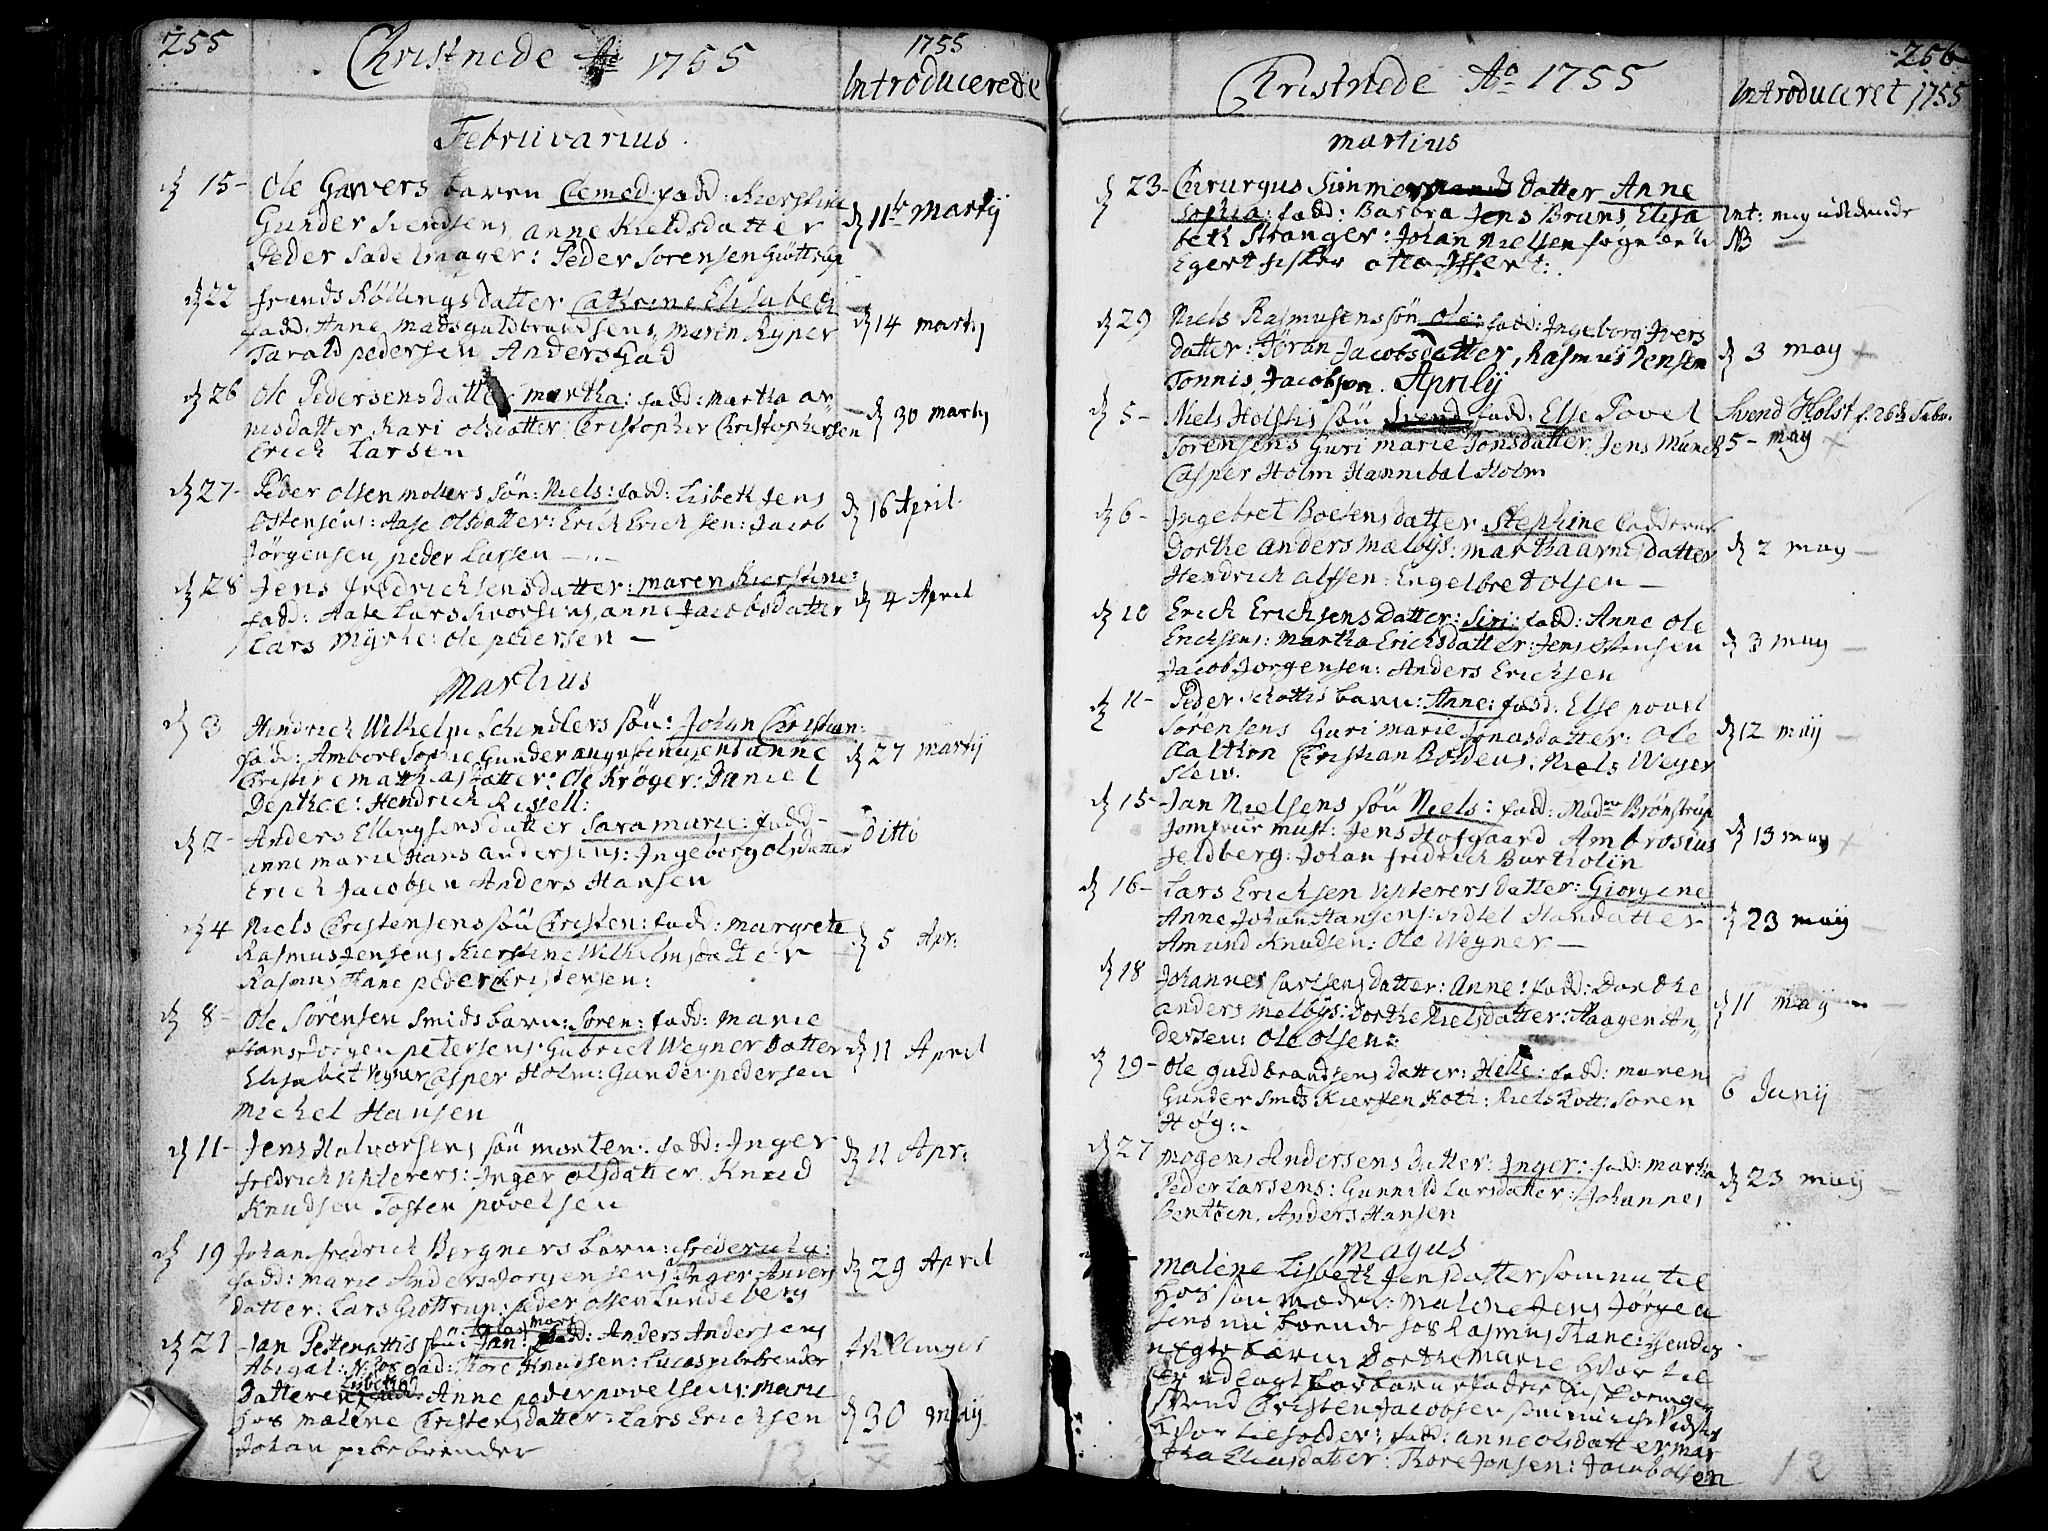 255
Christnede Ao 1755
1755
Introducerede
Februvarius.
15- Ole Gavers barn Clemed: fadd: Kierstine
Gunder Svendsens, anne Kieldsdatter
Peder Sadelmager: Peder Sorensen Giøttrup
d 11te Martij
d 22 frands Røllings datter Cathrine Elisabeth
fadd: Anne Madsguldbrandsens, Maren Ryper
Tarald pedersen Anders Gad
d 14 martij
d 26 Ole Pedersens datter martha: fadd: Martha ar-
nisdatter, Kari olsdatter: Christopher Christophersen
Erich Larsen
d 30 martij
d 27- Peder Olsen mollers søn: Niels: fadd: Lisbeth Jens
Ostensens: Aase Olsdatter: Erich Erichsen: Jacob
Jørgensen, peder Larsen
d 16 April.
d 28 Jens fredrichsens datter: maren Kierstine:
fadd: Aase Lars Tvorsens, anne Jacobsdatter
Lars Myrhe: Ole pedersen
d 4 April
Martius
d 3 Hindrich Wilhelm Schindlers søn: Johan Christian:
fadd: Ambore Sophie Gunder augustinusens anne
Christine matthias datter: Ole Krøger: Daniel
Depthce: Hendrich Rissell:
d 27 martij
d 2- Anders Ellingsens datter Sara marie: fadd-
anne marie Hans andersens: Ingeborg olsdatter
Erich Jacobsen Anders Hansen
Ditto
d 4 Niels Christensens søn Christen: fadd: margrete
Rasmus Jensens Kierstine Wilhelmsdatter
Rasmus Hane peder Christensen:
d 5 Apr:
d 8- Ole Sørensen Smids barn: Søren: fadd: Marie
Hans Jorgen petersens: Gabriel Wegner Datter
Elisabet Wegner Casper Holm: Gunder pedersen
Michel Hansen
d 11 April
d 11- Jens Halvorsens søn morten: fadd: Inger
fredrich Uhlerers: Inger olsdatter. Knud
Knudsen Tosten povelsen
d 11 Apr:
d 19 Johan fredrich Bergners barn: frederichs:
fadd: Marie Anders Jorgensens Inger Anders
datter: Lars Giøttrup: peder olsen Lundeberg
d 29 April
d 21 Jan Pettersattis søn: Jan: fadd: Anders Andersens
Abigal: Niels Gad: Thore Knudsen: Lucas pibebrender
Tvillinger
Datteren Lisbeth fadd: Anne peder povelsens: Marie
hos malene Christensdatter: Lars Erichsen
Johan pibebrender
d 30 may.
256
Christnede Ao 1755
Introduceret 1755
martius
d 23- Chirurgus Simmermands datter Anne
Sophia: fadd: Barbra Jens Bruns, Elisa
beth Stranger: Johan Nielsen
Egert fisker otto Iffert:
Int: mig uvidende
NB
d 29 Niels Rasmusens søn Ole: fadd: Ingeborg Ivers
datter: Jøran Jacobsdatter, Rasmus Jensen
Tonnis Jacobsen.
d 3 may
Aprilij
d 5- Niels Holstis søn Svend fadd: Else Povel
Sørensens Guri marie Jonsdatter: Jens Munch
Casper Holm Hannibal Holm
Svend Holst f. 26de Febr.
5- may
d 6- Ingebret Boesens datter Stephine fadderne
Dorthe anders mælbÿs: martha arnisdatter
Hendrich alfsen: Engelbret olsen
d 2 may
d 10 Erich Erichsens datter: Siri: fadd: Anne Ole
Erichsens: Martha Erichsdatter: Jens Ostensen
Jacob Jorgensen: Anders Erichsen
d 3 may
d 11- Peder Schottis barn: Anne: fadd: Else povel
Sørensens Guri marie Jonasdatter: Ole
Aalthon Christian Boldens, Niels Weyer
slew.
d 12 may
d 15- Jan Nielsens søn Niels: fadd: Madme Brønstrup
Jomfrue must: Jens Hofgaard Ambrosius
feldberg: Johan fridrich Bartholin
d 13 may
d 16- Lars Erichsen Uhlerers datter: Giorgine
Anne Johan Hansens: Sidsel Hansdatter
Amund Knudsen: Ole Wegner
d 23 maij
d 18 Johannes Carlsens datter: Anne: fadd: Dorthe
anders Melbÿs: Dorthe Nielsdatter: Haagen An-
dersen: Ole Olsen:
d 11 may
d 19- Ole guldbrandsens datter: Helle: fadd: maren
Gunder Smids Kiersten Koth: Niels Kott: Soren
Høg:
6 Junij
d 27 Mogens Andersens datter: Inger: fadd: martha
Peder Larsens: Gunnild Larsdatter: Johannes
Bentsen, Anders Hansen
d 23 may
Mayus
Malene Lisbeth Jensdatter som nu til
hos sin moder: Malene Jens Jørgen
sens nu boende hos Rasmus Thane: hendes
uegte barn Dorthe Marie hvor til
er udlagt for barnefader
Svend Christen Jacobsen som
fadd: anne olsdatter mar
tha Eliasdatter: Thore Jonsen: Jacob olsen
12
12